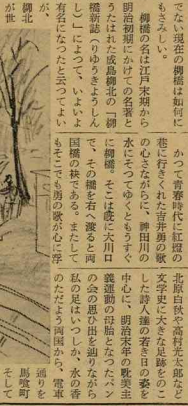 でない現在の柳橋は如何に
もさみしい。
柳橋の名は江戸末期から
明治初期にかけての名著と
うたはれた成島柳北の「柳
橋新誌(りゆうきようしん
し)」によつて、いよいよ
有名になつたと云つてよい
が、
柳北
が世
かつて青春時代に紅燈の
巷に行きくれた吉井勇の歌
の心さながらに、神田川の
水にそつてゆくともうすぐ
に柳橋。そこは既に大川口
で、その橋を右へ渡ると両
国橋の袂である。またして
もそこでも勇の歌が心に浮
北原白秋や高村光太郎など
文学史に大きな足跡をのこ
した詩人達の若き日の姿を
中心に、明治末年の耽美主
義運動の母胎となつたパン
の会の思ひ出を辿りながら
私の足はいつしか、水の香
のただよう両国から、電車
通りを
馬喰町
そして